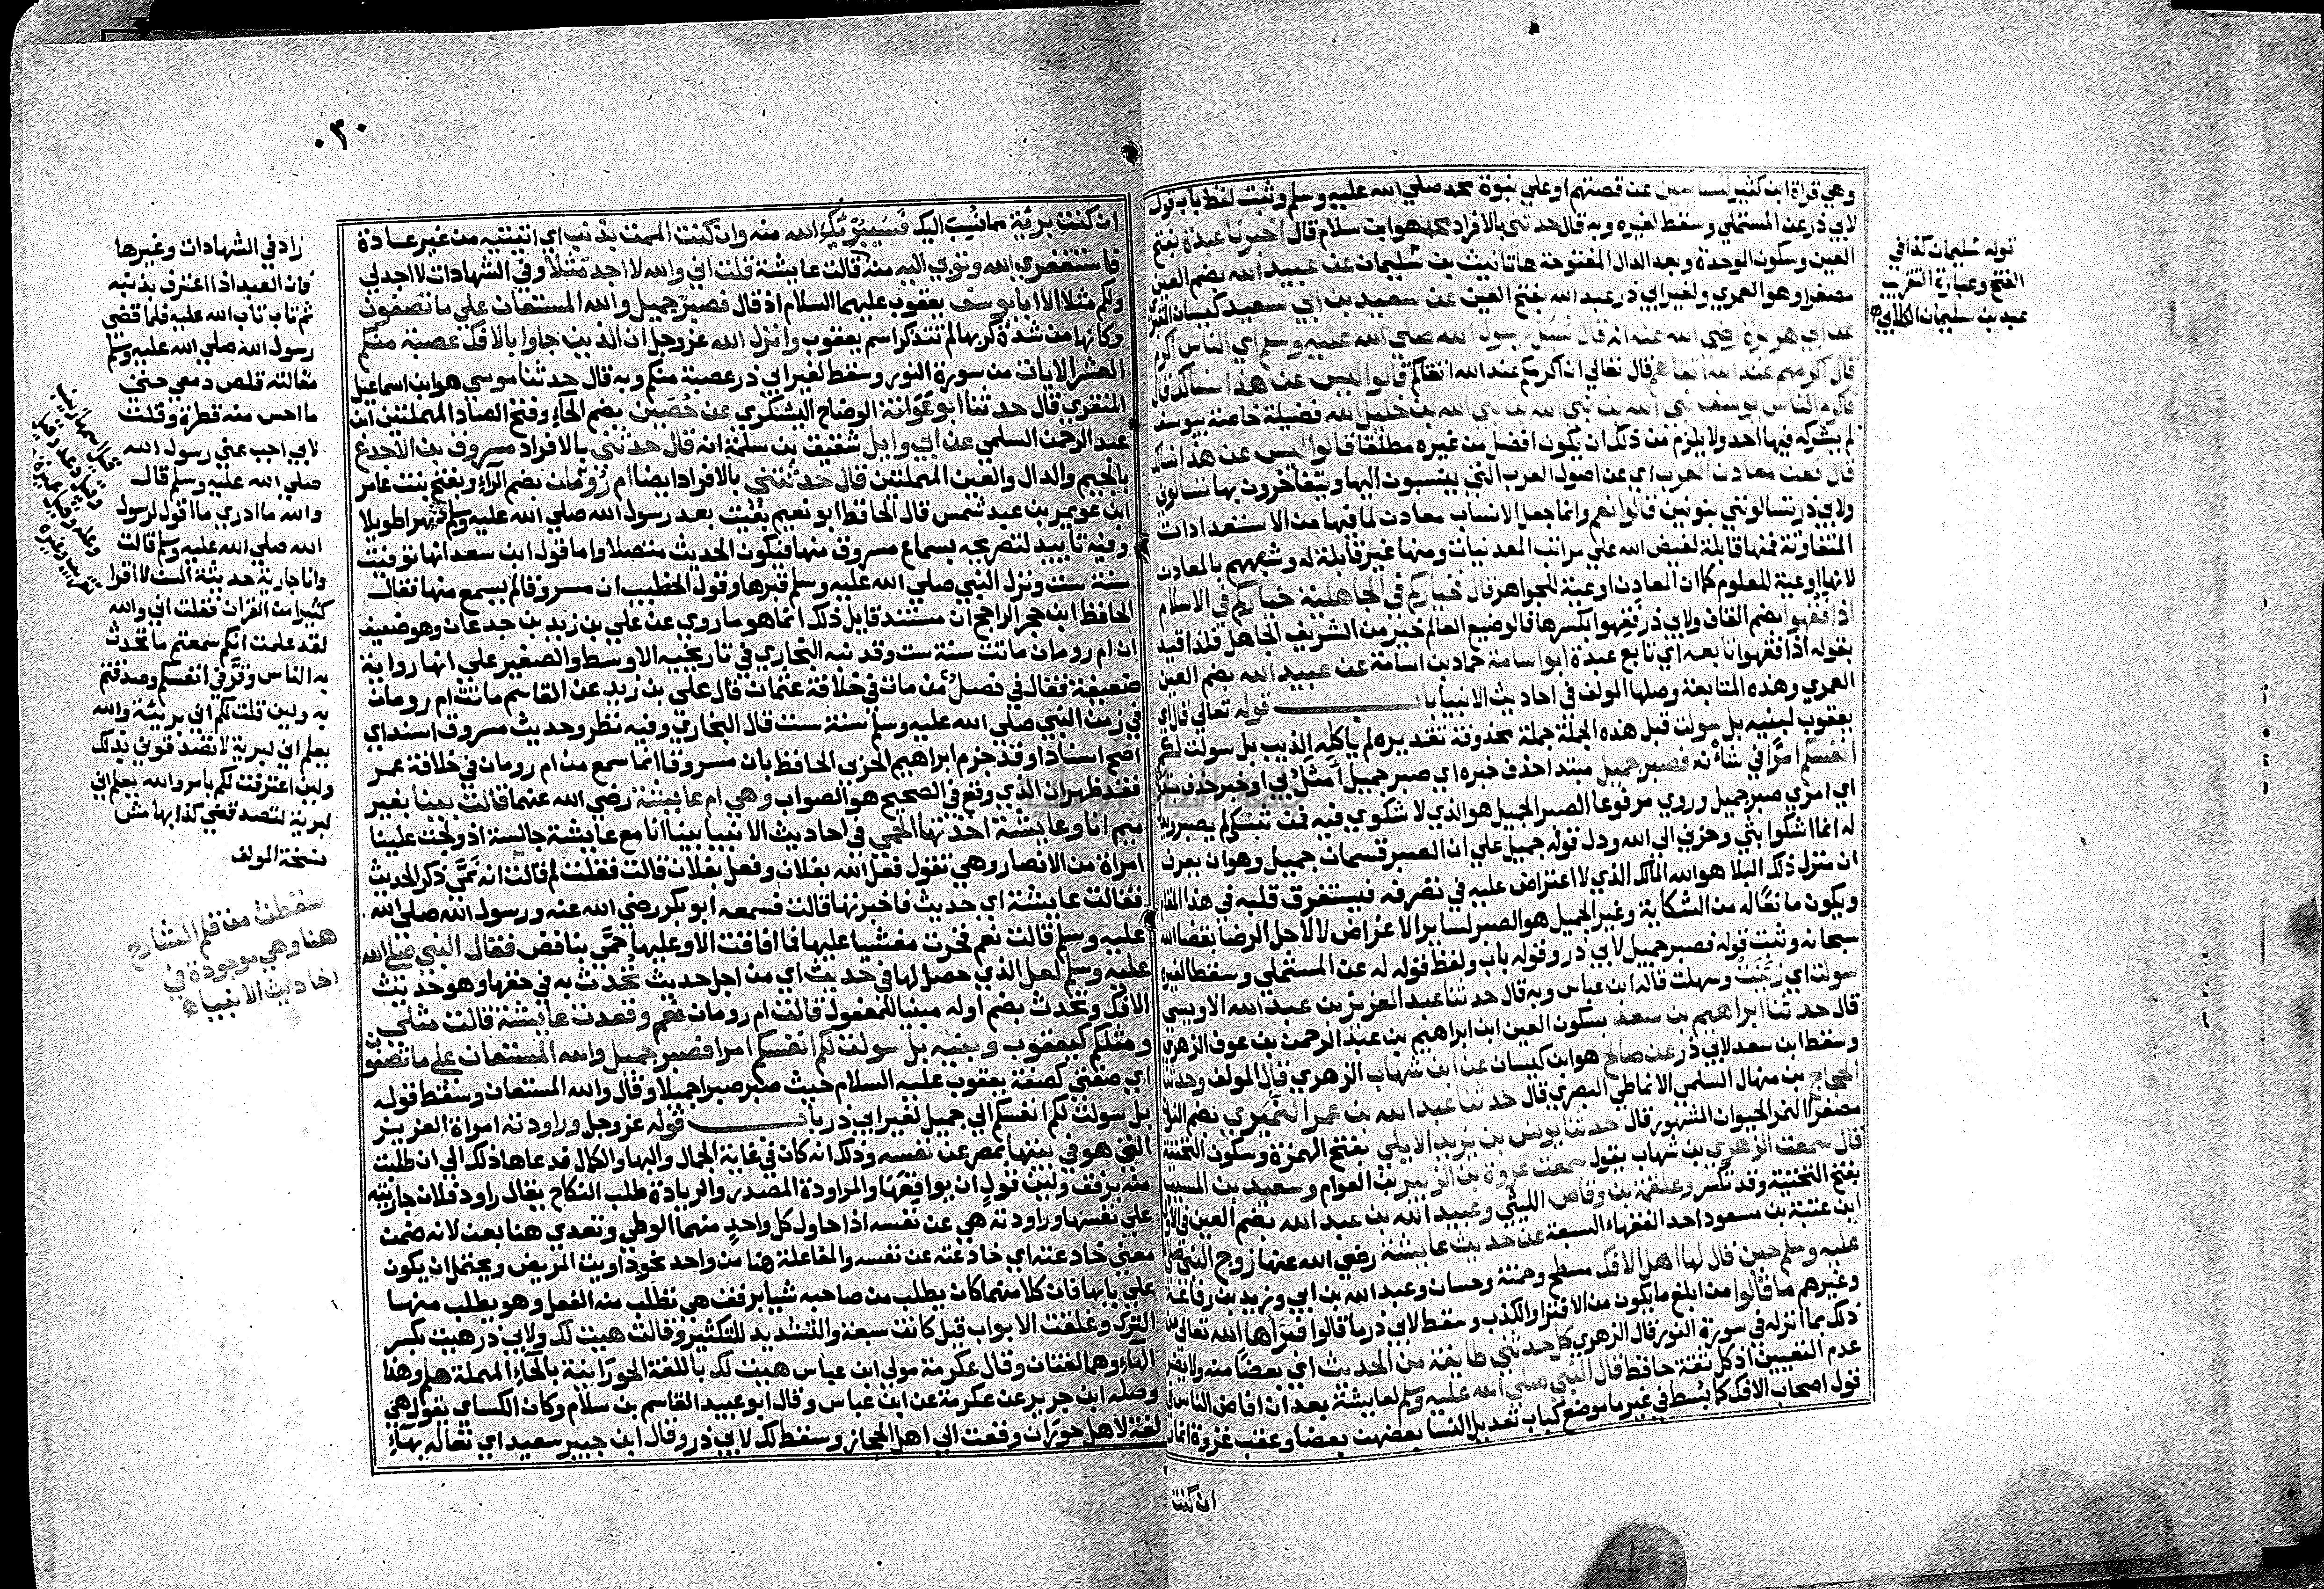 وهي قراة ابن كثير للسايلين عن قصتهم او علي نبوة محمد صلي الله عليه وسلم وثبت لفظ باب قول
لابي ذر عن المستملي وسقط لغيره وبه قال حدثني بالافراد محمد هو ابن سلام قال اخبرنا عبدة بفتح
العين وسكون الوحدة وبعد الدال المفتوحة ها تانيث بن سليمان عن عبيد الله بضم العين
مصغرا وهو العمري ولغير ابي ذر عبد الله بفتح العين عن سعيد بن ابي سعيد كيسان المقبري
عن ابي هريرة رضي الله عنه انه قال سئل رسول الله صلي الله عليه وسلم اي الناس اكرم
قال اكرمهم عند الله اتقاهم قال تعالي ان اكرمكم عند الله اتقاكم قالوا ليس عن هذا نسالك قال
فاكرم الناس يوسف نبي الله بن نبي الله بن نبي الله بن خليل الله فضيلة خاصة بيوسف
لم يشركه فيها احد ولا يلزم من ذلك ان يكون افضل من غيره مطلقا قالوا ليس عن هذا نسالك
قال فعن معادن العرب اي عن اصول العرب التي ينتسبون اليها ويتفاخرون بها تسالوني
ولابي ذر تسالونني بنونين قالوا نعم وانما جعل الانساب معادن لما فيها من الاستعدادات
المتفاوتة فمنها قابلة لفيض الله علي مراتب المعدنيات ومنها غير قابلة له وشبههم بالمعادن
لانها اوعية للعلوم كما ان المعادن اوعية للجواهر قال فخياركم في الجاهلية خياركم في الاسلام
اذا فقهوا بضم القاف ولابي ذر فقهوا بكسرها فالوضيع العالم خير من الشريف الجاهل فلذا قيد
بقوله اذا فقهوا تابعه اي تابع عبدة ابو اسامة حماد بن اسامة عن عبيد الله بضم العين
العمري وهذه المتابعة وصلها المولف في احاديث الانبيا باب قوله تعالي قال اي
يعقوب لبنيه بل سولت قبل هذه الجملة جملة محذوفة تقديره لم ياكله الذيب بل سولت لكم
انفسكم امرا في شانه فصبر جميل مبتدا حذف خبره اي صبر جميل امثل بي او خبر حذف مبتداه
اي امري صبر جميل وروي مرفوعا الصبر الجميل هو الذي لا شكوي فيه فمن بث لم يصبر
له انما اشكوا بثي وحزني الي الله ودل قوله جميل علي ان الصبر قسمان جميل وهو ان يعرف
ان منزل ذلك البلا هو الله المالك الذي لا اعتراض عليه في تصرفه فيستغرق قلبه في هذا المقام
ويكون مانعا له من الشكاية وغير الجميل هو الصبر لساير الاغراض لا لاجل الرضا بقضا الله
سبحانه وثبت قوله فصبر جميل لابي ذر وقوله باب ولفظ قوله له عن المستملي وسقطا لغيره
سولت اي زينت وسهلت قاله ابن عباس وبه قال حدثنا عبد العزيز بن عبد الله الاويسي
قال حدثنا ابراهيم بن سعد بسكون العين ابن ابراهيم بن عبد الرحمن بن عوف الزهري
وسقط ابن سعد لابي ذر عن صالح هو ابن كيسان عن ابن شهاب الزهري قال المولف وحدثنا
الحجاج بن منهال السلمي الانماطي البصري قال حدثنا عبد الله بن عمر النميري بضم النون
مصغرا النمر الحيوان المشهور قال حدثنا يونس بن يزيد الايلي بفتح الهمزة وسكون التحتية
قال سمعت الزهري بن شهاب يقول سمعت عروة بن الزبير بن العوام وسعيد بن المسيب
بفتح التحتية وقد تكسر وعلقمة بن وقاص الليثي وعبيد الله بن عبد الله بضم العين في الاول
ابن عتبة بن مسعود احد الفقهاء السبعة عن حديث عايشة رضي الله عنها زوج النبي صلي
عليه وسلم حين قال لها اهل الافك مسطح وحمنة وحسان وعبد الله بن ابي وزيد بن رفاعة
وغيرهم ما قالوا من ابلغ ما يكون من الافترا والكذب وسقط لابي ذر ما قالوا فبرأها الله تعالي من
ذلك بما انزله في سورة النور قال الزهري كل حدثني طايفة من الحديث اي بعضا منه ولا يضر
عدم التعيين اذ كل ثقة حافظ قال النبي صلي الله عليه وسلم لعايشة بعد ان افاض الناس في
قول اصحاب الافك كما بسط في غير ما موضع كباب تعديل النسا بعضهن بعضا وعقب غزوة انمار
ان كنت
قوله سليمان كذا في
الفتح وعبارة التقريب
عبد بن سليمان الكلابي
٠٣٠
ان كنت بريئة مما نسب اليك فسيبريك الله منه وان كنت الممت بذنب اي اتيتيه من غير عادة
فاستغفري الله وتوبي اليه منه قالت عايشة قلت اني والله لا اجد مثلا وفي الشهادات لا اجد لي
ولكم مثلا الا ابا يوسف يعقوب عليهما السلام اذ قال فصبر جميل والله المستعان علي ما تصفون
وكانها من شدة كربها لم تتذكر اسم يعقوب وانزل الله عز وجل ان الذين جاوا بالافك عصبة منكم
العشر الايات من سورة النور وسقط لغير ابي ذر عصبة منكم وبه قال حدثنا موسي هو ابن اسماعيل
المنقري قال حدثنا ابو عوانة الوضاح اليشكري عن حصين بضم الحاء وفتح الصاد المهملتين ابن
عبد الرحمن السلمي عن ابي وايل شقيق بن سلمة انه قال حدثني بالافراد مسروق بن الاجدع
بالجيم والدال والعين المهملتين قال حدثتني بالافراد ايضا ام رومان بضم الراء وتفتح بنت عامر
ابن عويمر بن عبد شمس قال الحافظ ابو نعيم بقيت بعد رسول الله صلي الله عليه وسلم دهرا طويلا
وفيه تاييد لتصريحه بسماع مسروق منها فيكون الحديث متصلا واما قول ابن سعد انها توفيت
سنة ست ونزل النبي صلي الله عليه وسلم قبرها وقول الخطيب ان مسروقا لم يسمع منها فقال
الحافظ ابن حجر الراجح ان مستند قايل ذلك انما هو ما روي عن علي بن زيد بن جدعان وهو ضعيف
ان ام رومان ماتت سنة ست وقد نبه البخاري في تاريخيه الاوسط والصغير علي انها رواية
ضعيفة فقال في فصل من مات في خلافة عثمان قال علي بن زيد عن القاسم ماتت ام رومان
في زمن النبي صلي الله عليه وسلم سنة ست قال البخاري وفيه نظر وحديث مسروق اسند اي
اصح اسنادا وقد جزم ابراهيم الحربي الحافظ بان مسروقا انما سمع من ام رومان في خلافة عمر
فقد ظهر ان الذي وقع في الصحيح هو الصواب وهي ام عايشة رضي الله عنهما قالت بينا بغير
ميم انا وعايشة اخذتها الحمي في احاديث الانبيا بينا انا مع عايشة جالسة اذ ولجت علينا
امراة من الانصار وهي تقول فعل الله بفلان وفعل بفلان قالت فقلت لم قالت انه نمي ذكر الحديث
فقالت عايشة اي حديث فاخبرتها قالت فسمعه ابو بكر رضي الله عنه ورسول الله صلي الله
عليه وسلم قالت نعم فخرت مغشيا عليها فما افاقت الا وعليها حمي بنافض فقال النبي صلي الله
عليه وسلم لعل الذي حصل لها في حديث اي من اجل حديث تحدث به في حقها وهو حديث
الافك وتحدث بضم اوله مبنيا للمفعول قالت ام رومان نعم وقعدت عايشة قالت مثلي
ومثلكم كيعقوب وبنيه بل سولت لكم انفسكم امرا فصبر جميل والله المستعان علي ما تصفون
اي صفتي كصفة يعقوب عليه السلام حيث صبر صبرا جميلا وقال والله المستعان وسقط قوله
بل سولت لكم انفسكم الي جميل لغير ابي ذر باب قوله عز وجل وراودته امراة العزيز
التي هو في بيتها بمصر عن نفسه وذلك انه كان في غاية الجمال والبها والكمال فدعاها ذلك الي ان طلبت
منه برفق ولين قول ان يواقعها والمراودة المصدر والريادة طلب النكاح يقال راود فلان جاريته
علي نفسها وراودته هي عن نفسه اذا حاول كل واحد منهما الوطي وتعدي هنا بعن لانه ضمن
معني خادعته اي خادعته عن نفسه والمفاعلة هنا من واحد نحو داويت المريض ويحتمل ان يكون
علي بابها فان كلا منهما كان يطلب من صاحبه شيا برفق هي تطلب منه الفعل وهو يطلب منها
الترك وغلقت الابواب قيل كانت سبعة والتشديد للتكثير وقالت هيت لك ولابي ذر هيت بكسر
الهاء وهما لغتان وقال عكرمة مولي ابن عباس هيت لك باللغة الحورانية بالحاء المهملة هلم وهذا
وصله ابن جرير عن عكرمة عن ابن عباس وقال ابو عبيد القاسم بن سلام وكان الكساي يقول هي
لغة لاهل حوران وقعت الي اهل الحجاز وسقط لك لابي ذر وقال ابن جبير سعيد اي تعاله بهاء
زاد في الشهادات وغيرها
فان العبد اذا اعترف بذنبه
ثم تاب تاب الله عليه فلما قضي
رسول الله صلي الله عليه وسلم
مقالته قلص دمعي حتي
ما احس منه قطرة وقلت
لابي اجب عني رسول الله
صلي الله عليه وسلم قال
والله ما ادري ما اقول لرسول
الله صلي الله عليه وسلم قالت
وانا جارية حديثة السن لا اقرا
كثيرا من القران فقلت اني والله
لقد علمت انكم سمعتم ما تحدث
به الناس وقر في انفسكم وصدقتم
به ولين قلت لكم اني بريئة والله
يعلم اني لبرية لا تصدقوني بذلك
ولين اعترفت لكم بامر والله يعلم اني
لبرية لتصدقني كذا بهامش
نسخة المولف
سقطت من قلم الشارح
هنا وهي موجودة في
احاديث الانبياء